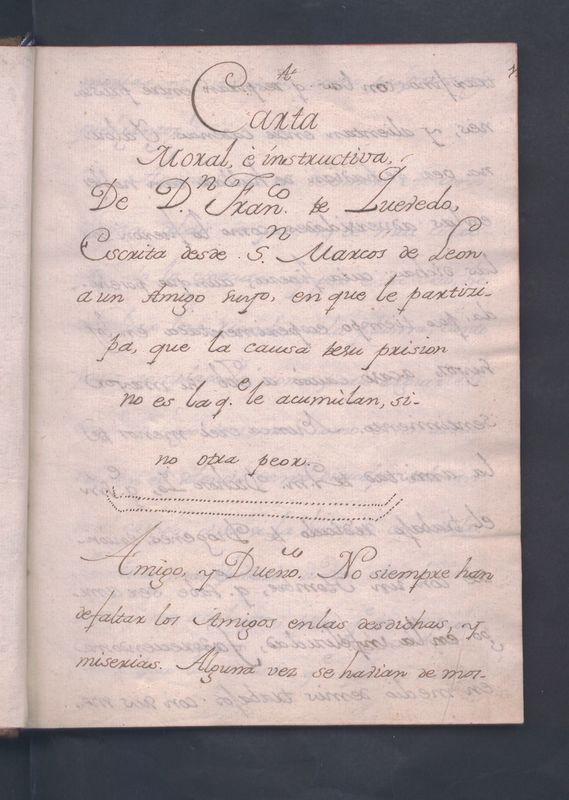 Carta
Moral, è instructiva,
De D.n Fran.co de Quevedo,
Escrita desde S.n Marcos de Leon
a un Amigo suyo, en que le partizi-
pa, que la causa desu prision
no es la q.e le acumùlan, si-
no otra peor.
Amigo, y Dueño. No siempre han
defaltar los Amigos enlas desdichas, y
miserias. Alguna vez se havian de mos-